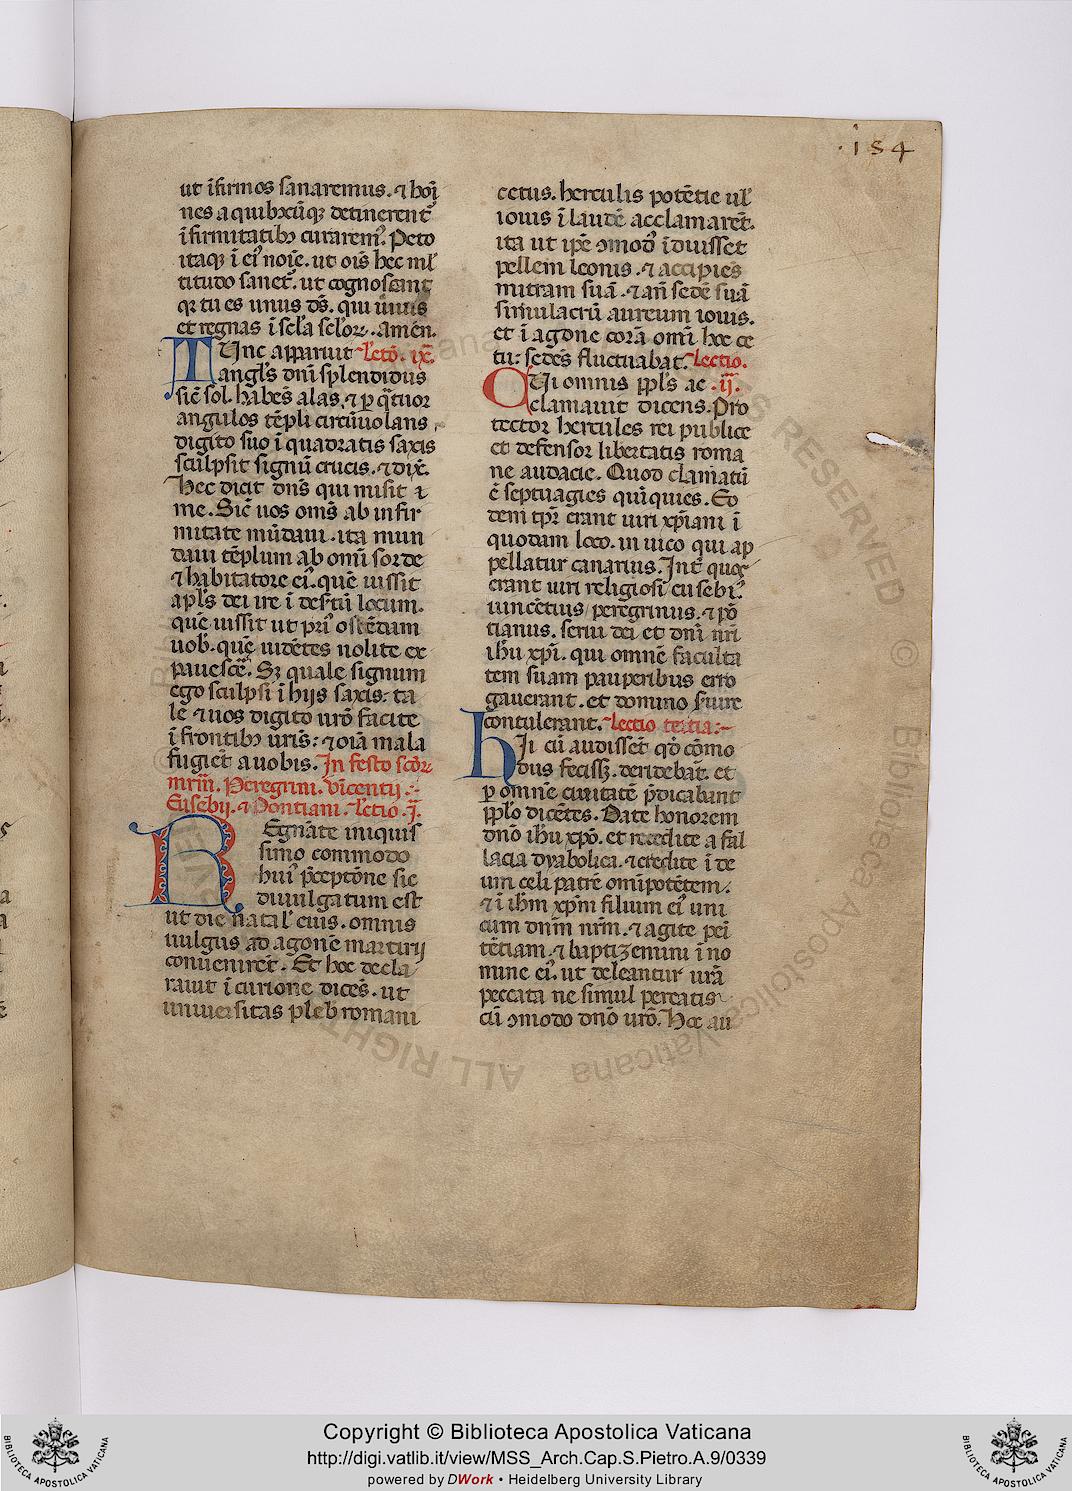 .154
ut īfirmos sanaremus. ⁊ hoī
nes a quibꝰcūqꝫ detinerent᷑
īfirmitatibꝫ curarem᷒. Peto
itaqꝫ ī ei᷒ noīe. ut oīs hec ml̄
titudo sanet᷑. ut cognoscant
qꝛ tu es unus dš. qui uiuis
et regnas ī sel̄a sel̄oꝝ. amēn.
TUnc apparuit Lectō. ix.
angl̄s dnī splendidus
sic̄ sol. habēs alas. ⁊ ꝑ q̄tuor
angulos tēpli circūuolans
digito suo ī quadratis saxis
sculpsit signū crucis. ⁊ dix̄.
Hec dicit dns̄ qui misit
me. Sic̄ uos oms̄ ab infir
mitate mūdaui. ita mun
daui tēplum ab omī sorde
⁊ habitatore ei᷒. quē iussit
apl̄s dei ire ī des̄tū locum.
quē iussit ut pri᷒ ostēdam
uob᷒. quē uidētes nolite ex
pauescē. Sꝫ quale signum
ego sculpsi ī hijs saxis: ta
le ⁊ uos digito ur̄o facite
ī frontibꝫ uris̄: ⁊ oīa mala
fugiēt a uobis. In festo scōꝝ
mr̄m. Peregrini. Vīcentij.
Eusebij. ⁊ Pontiani. Lectio. j.
REgnāte iniquis
simo commodo
hui᷒ p̄ceptōne sic
diuulgatum est
ut die natal̄ eius. omnis
uulgus ad agonē martirij
conuenirēt. Et hoc decla
rauit ī curione dicēs. ut
uniuersitas pleb romani
cetus. herculis potētie ul̄
iouis ī laudē acclamarēt.
ita ut ip̄e ɔmod᷒ īduisset
pellem leonis. ⁊ accipiēs
mitram suā. ⁊ an̄ sedē suā
simulacrū aureum iouis.
et ī agone corā omī hoc ce
tu: sedēs fluctuabat. Lectio.
CUi omnis ppl̄s ac .ij.
clamauit dicens. Pro
tector hercules rei publice
et defensor libertatis roma
ne audacie. Quod clamatū
ē septuagies quīquies. Eo
dem tp̄r erant uiri xp̄iani ī
quodam loco. in uico qui ap
pellatur canarius. Int̄ quos
erant uiri religiosi eusebi᷒.
uincētius peregrinus. ⁊ pō
tianus. serui dei et dnī nr̄i
ihū xp̄i. qui omnē faculta
tem suam pauperibus erro
gauerant. et domino suure
contulerant. Lectio tertia:
HIi cū audissēt qd̄ cōmo
dus fecissꝫ. deridebāt. et
ꝑ omnē ciuitatē p̄dicabant
ppl̄o dicētes. Date honorem
dnō ihū xp̄o. et recedite a fal
lacia dyabolica. ⁊ credite ī de
um celi patrē omīpotētem.
⁊ ī ihm̄ xp̄m filium ei᷒ uni
cum dnm̄ nrm̄. ⁊ agite pei
tētiam. ⁊ baptizemini ī no
mine ei᷒. ut deleantur ur̄a
peccata ne simul pereatis
cū ɔmodo dnō ur̄o. Hoc au
Copyright © Biblioteca Apostolica Vaticana
http://digi.vatlib.it/view/MSS_Arch.Cap.S.Pietro.A.9/0339
powered by DWork • Heidelberg University Library